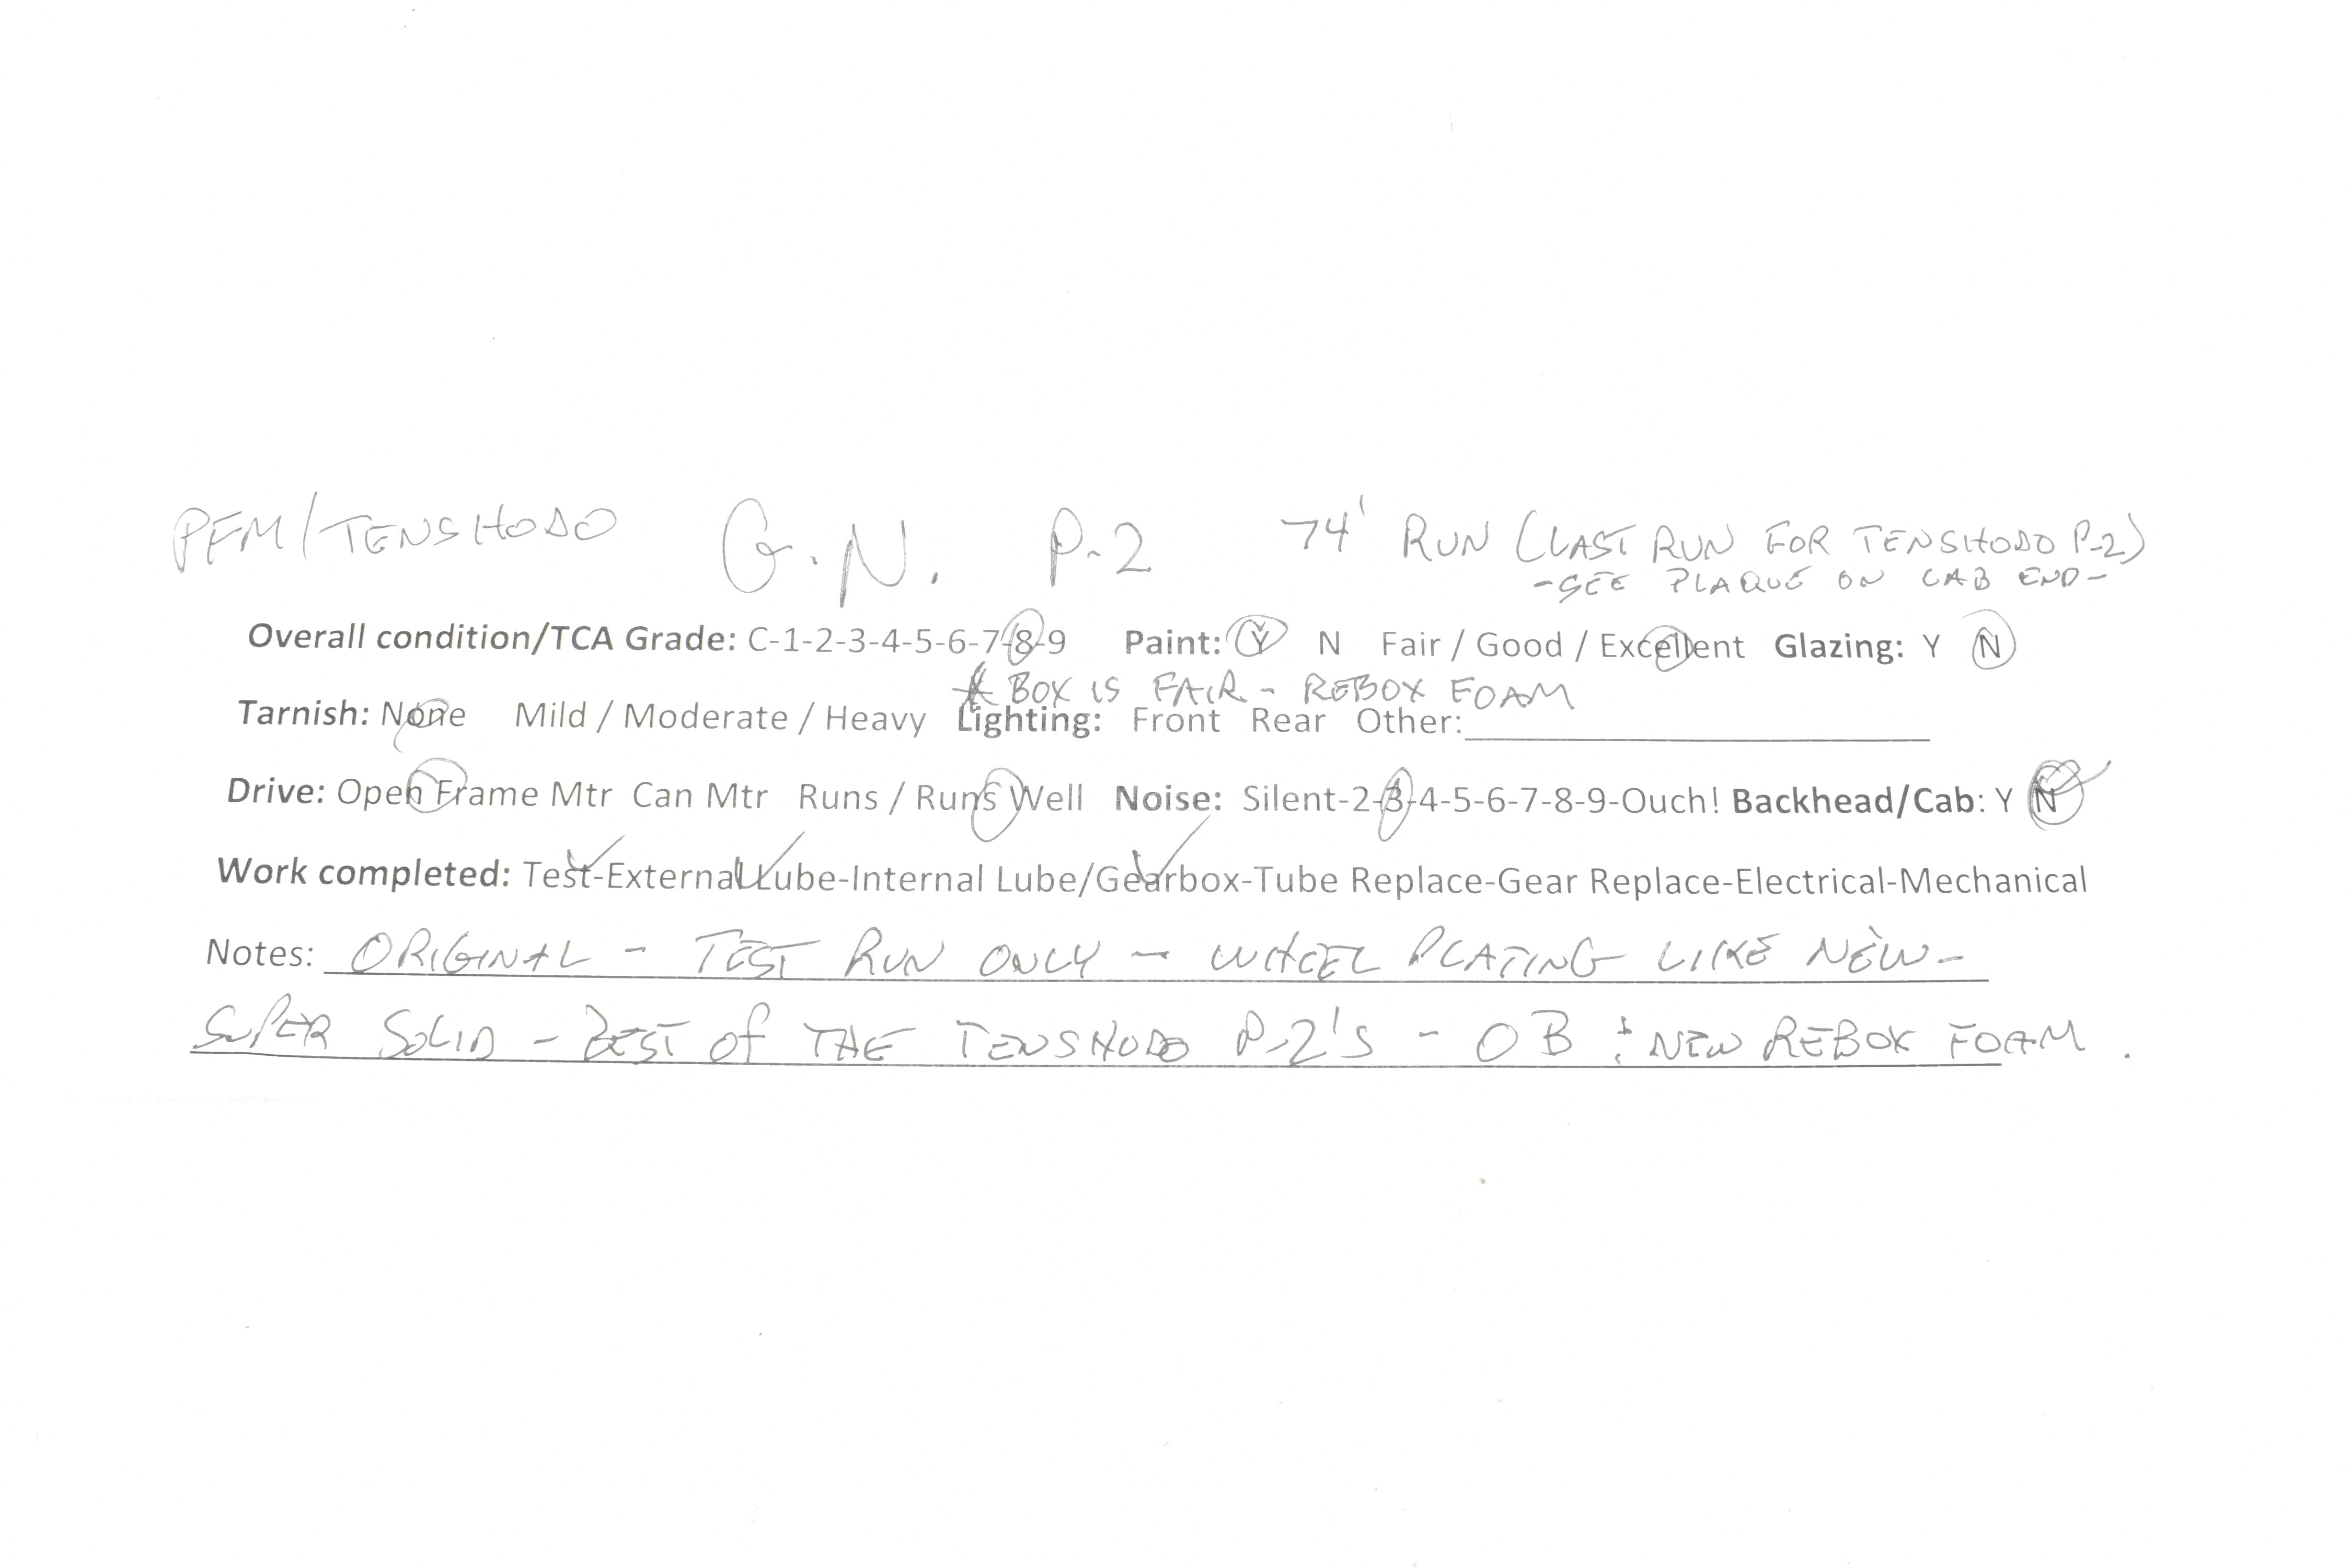 PFM/TENSHODO G.N. P-2 74' RUN (LAST RUN FOR TENSHODO P-2)
-SEE PLAQUE ON CAB END-
Overall condition/TCA Grade: C-1-2-3-4-5-6-7-8-9 Paint: Y N Fair / Good / Excellent Glazing: Y N
* BOX IS FAIR - REBOX FOAM
Tarnish: None Mild / Moderate / Heavy Lighting: Front Rear Other:
Drive: Open Frame Mtr Can Mtr Runs / Runs Well Noise: Silent-2-3-4-5-6-7-8-9-Ouch! Backhead/Cab: Y N
Work completed: Test-External Lube-Internal Lube/Gearbox-Tube Replace-Gear Replace-Electrical-Mechanical
Notes: ORIGINAL - TEST RUN ONLY - WHEEL PLATING LIKE NEW-
SUPER SOLID - BEST OF THE TENSHODO P-2'S - OB + NEW REBOX FOAM.